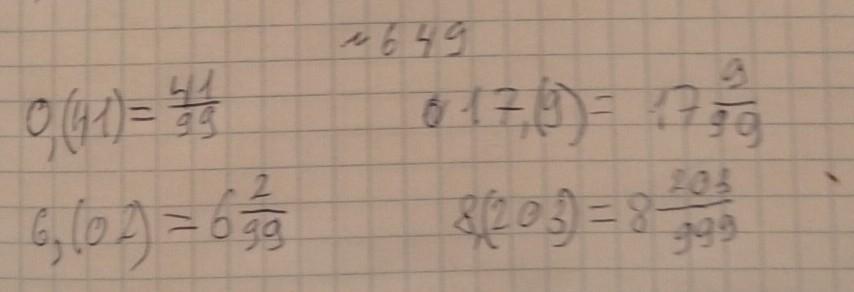 №649
0,(41) = 41/99
17,(9) = 17 9/99
6,(02) = 6 2/99
8,(203) = 8 203/999